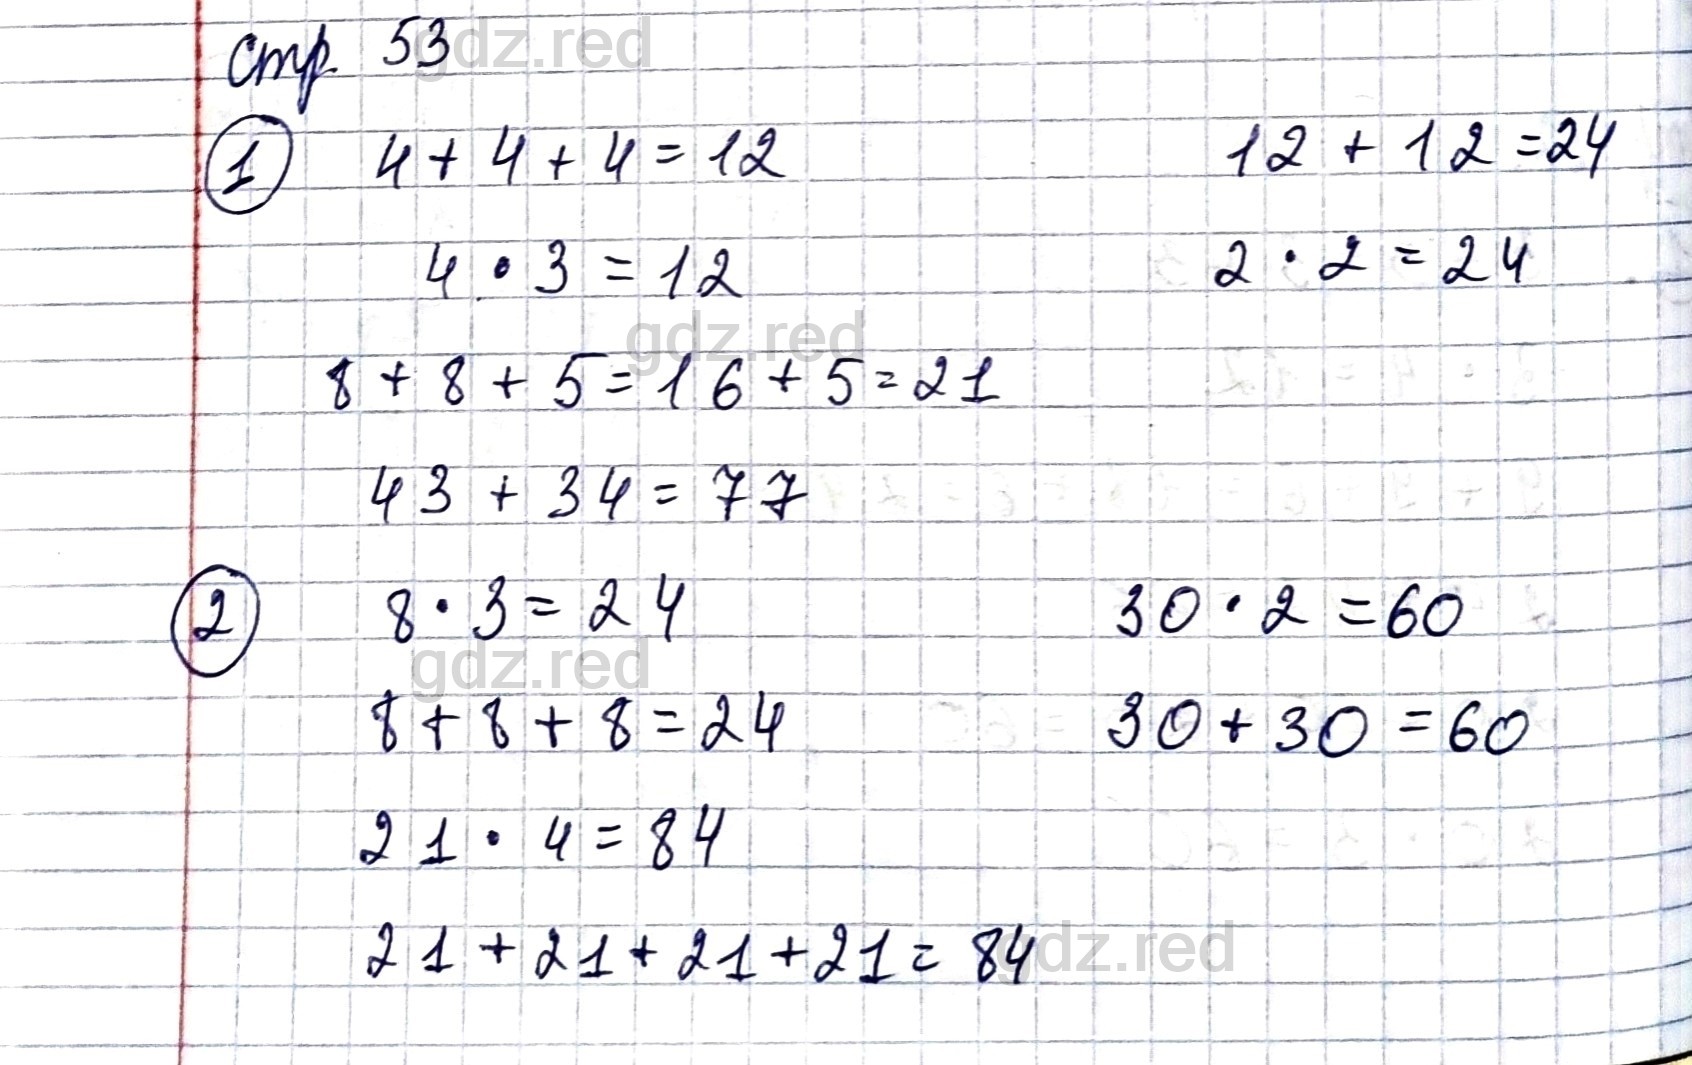 стр. 53
1 4 + 4 + 4 = 12 12 + 12 = 24
4 · 3 = 12 2 · 2 = 24
8 + 8 + 5 = 16 + 5 = 21
43 + 34 = 77
2 8 · 3 = 24 30 · 2 = 60
8 + 8 + 8 = 24 30 + 30 = 60
21 · 4 = 84
21 + 21 + 21 + 21 = 84
gdz.red
gdz.red
gdz.red
gdz.red